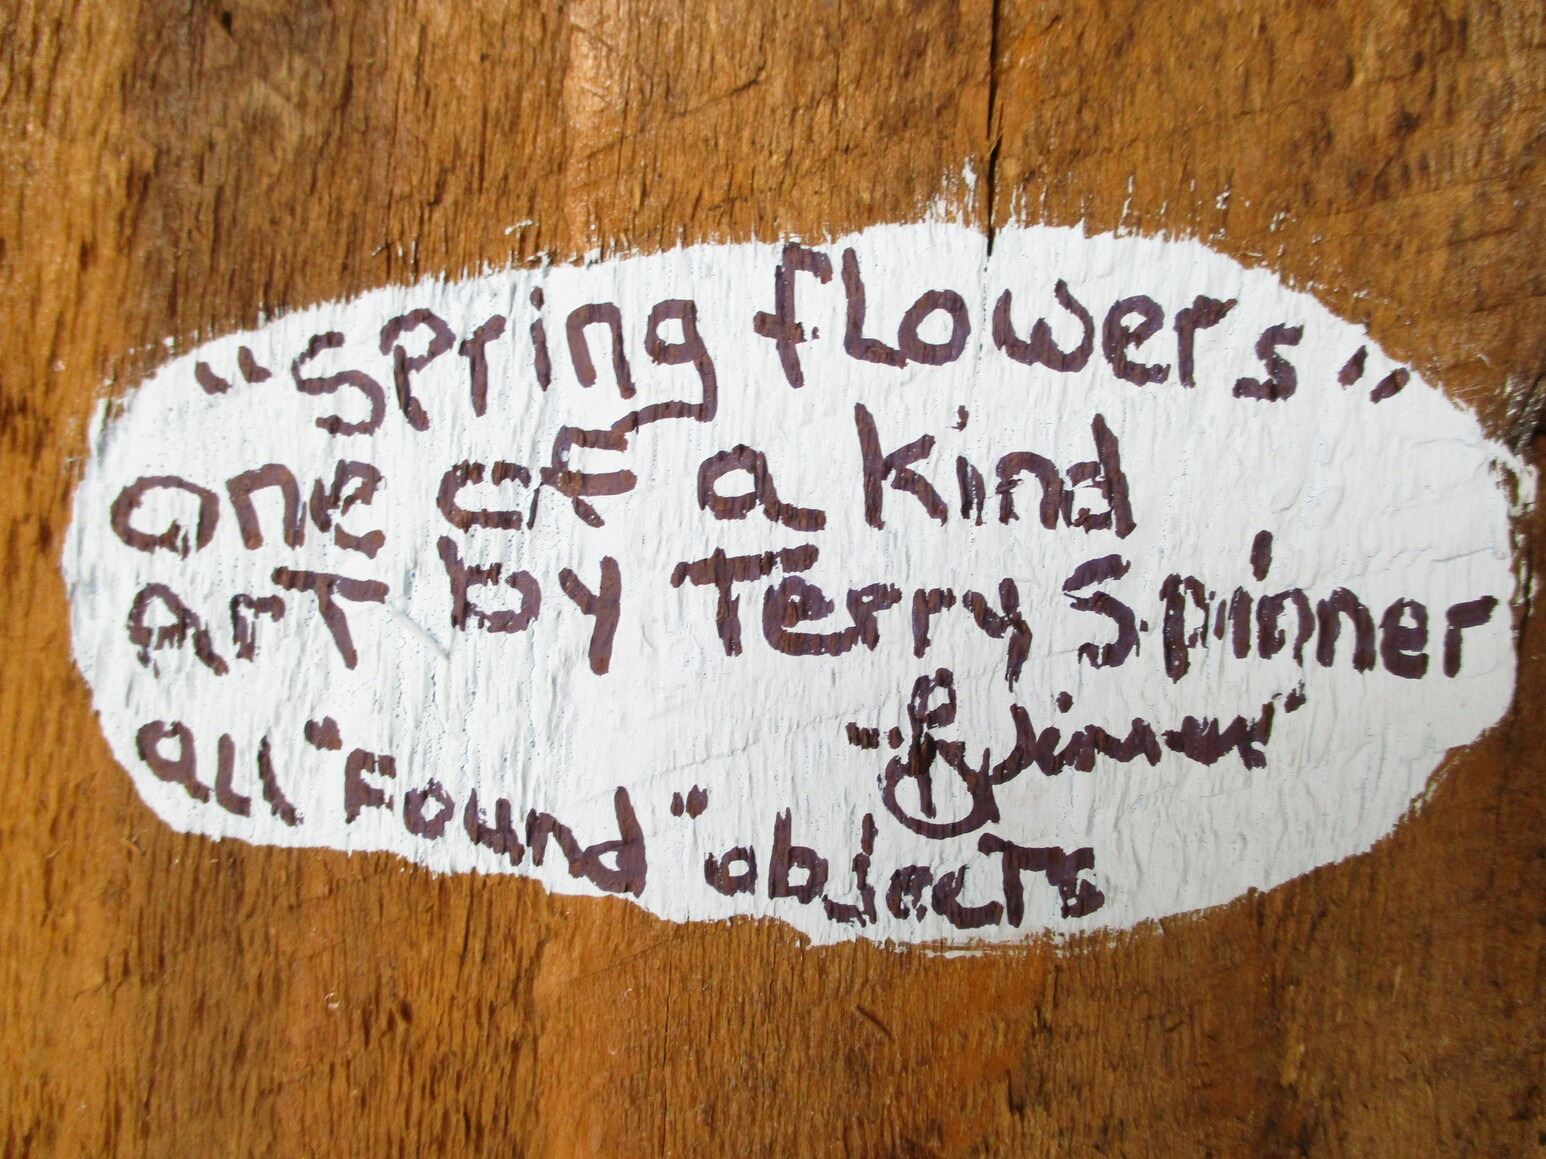 "Spring flowers"
One of a kind
Art by Terry Spinner
All "Found" objects